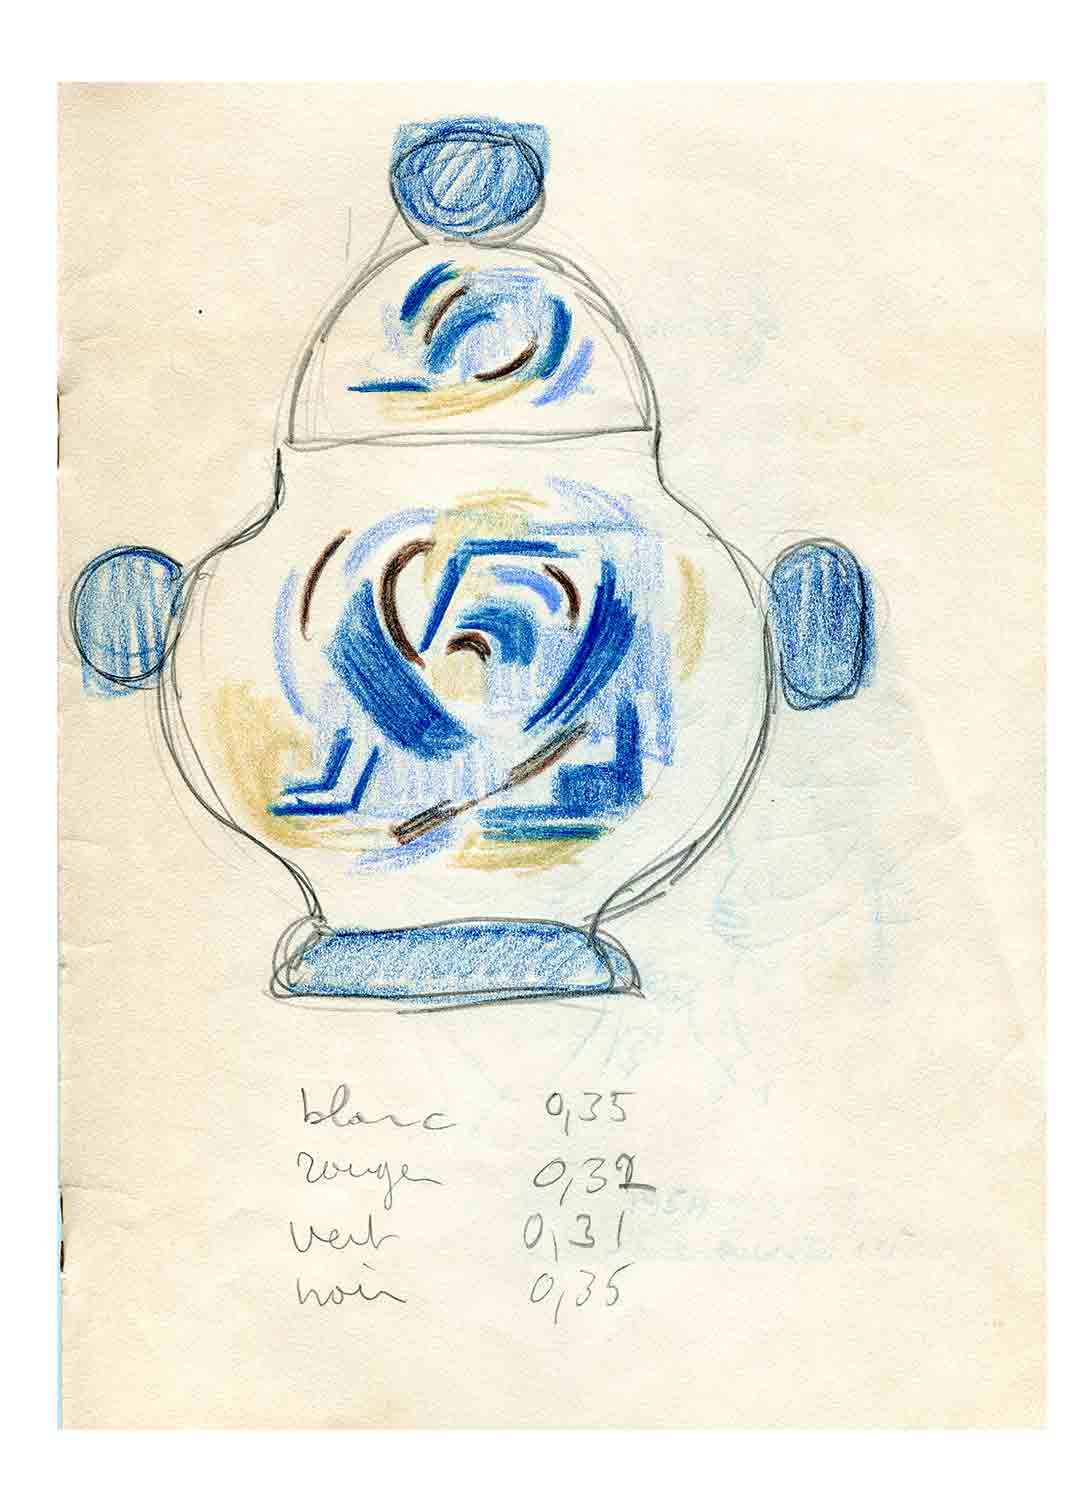 blanc 0,35
rouge 0,32
vert 0,31
noir 0,35